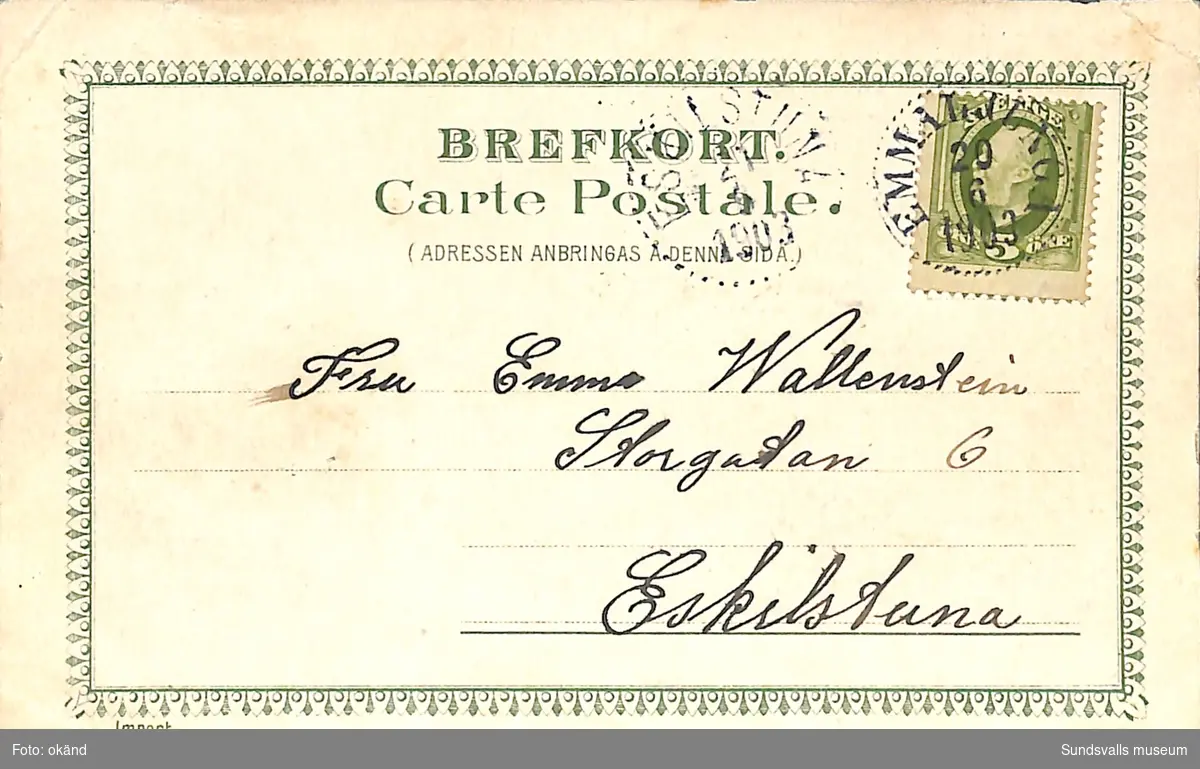 BREFKORT.
Carte Postale.
(ADRESSEN ANBRINGAS Å DENNA SIDA.)
ESKILSTUNA
1903
EMMALJUNGA
20
6
1903
SVERIGE
FEM 5 ÖRE
Fru Emma Wallenstein
Storgatan 6
Eskilstuna
Import
Foto: okänd
Sundsvalls museum